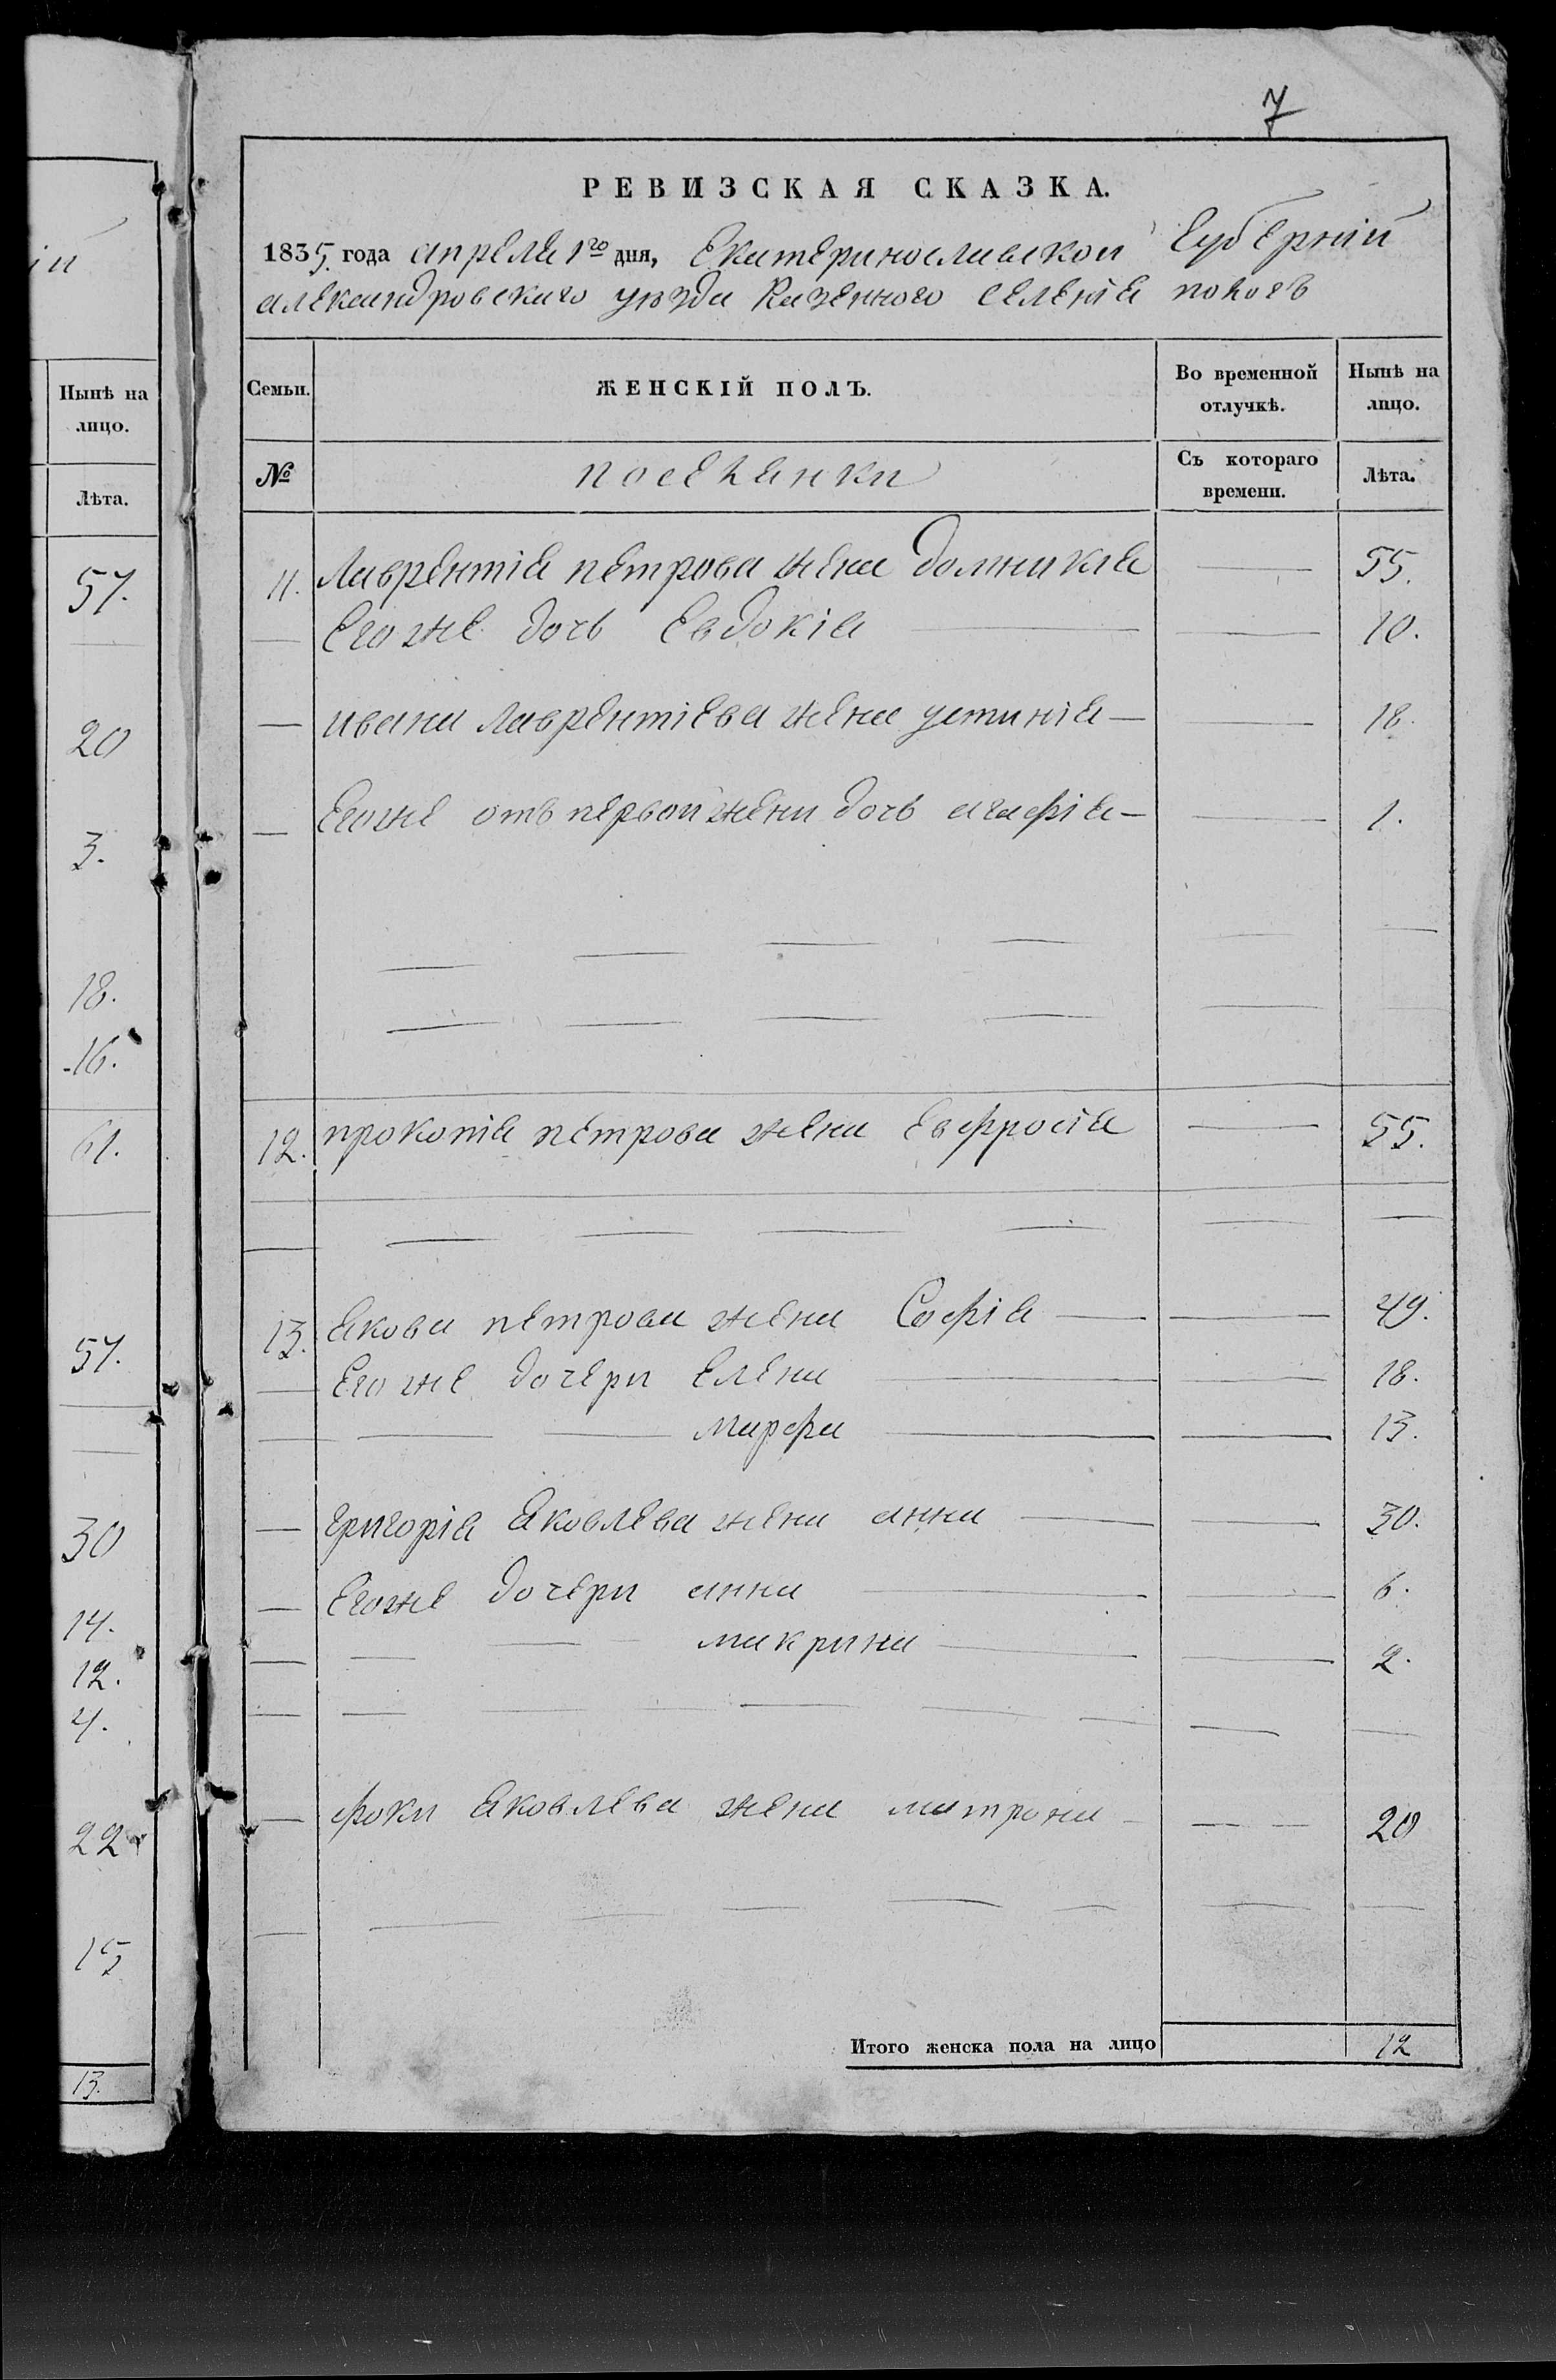 ій
Нынѣ на
лицо.
Лѣта.
57.
20
3.
18.
16.
61.
57.
30
14.
12.
4.
22
15
13.
7
РЕВИЗСКАЯ СКАЗКА.
1835. года апреля 1го дня, Екатеринославской Губерній
александровского уѣзда Казенного Селенія
Семьи. ЖЕНСКІЙ ПОЛЪ. Во временной отлучкѣ. Нынѣ на лицо.
№ поселянки Съ котораго времени. Лѣта.
11. Лаврентія петрова жена домникія — 55.
— Егоже дочь Евдокія — — 10.
— ивана лаврентіева жена устинія — — 18.
— Егоже отъ первой жены дочь агафія — — 1.
12. прокопія петрова жена Евфросія — 55.
13. якова петрова жена Софія — — 49.
— Егоже дочери Елена — — 18.
— — — марфа — — 13.
— григорія яковлева жена анна — — 30.
— Егоже дочери анна — — 6.
— — — макрина — — 2.
— фоки яковлева жена матрона — — — 20
Итого женска пола на лицо 12